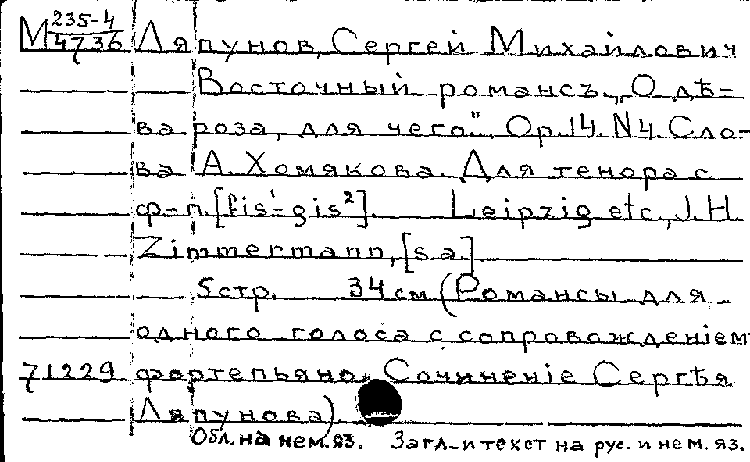 М 235-4
4736 Ляпунов, Сергей Михайлович
Восточный романсъ „О дѣ-
ва роза, для чего“, Op. 14. N 4. Сло-
ва А. Хомякова. Для тенора с
ф-п. [fis¹-gis²]. Leipzig etc., J. H.
Zimmermann, [s.a.]
5 стр. 34 см (Романсы для
одного голоса с сопровожденіем
71229 фортепьяно. Сочиненіе Сергѣя
Ляпунова).
Обл. на нем. яз. Загл. и текст на рус. и нем. яз.